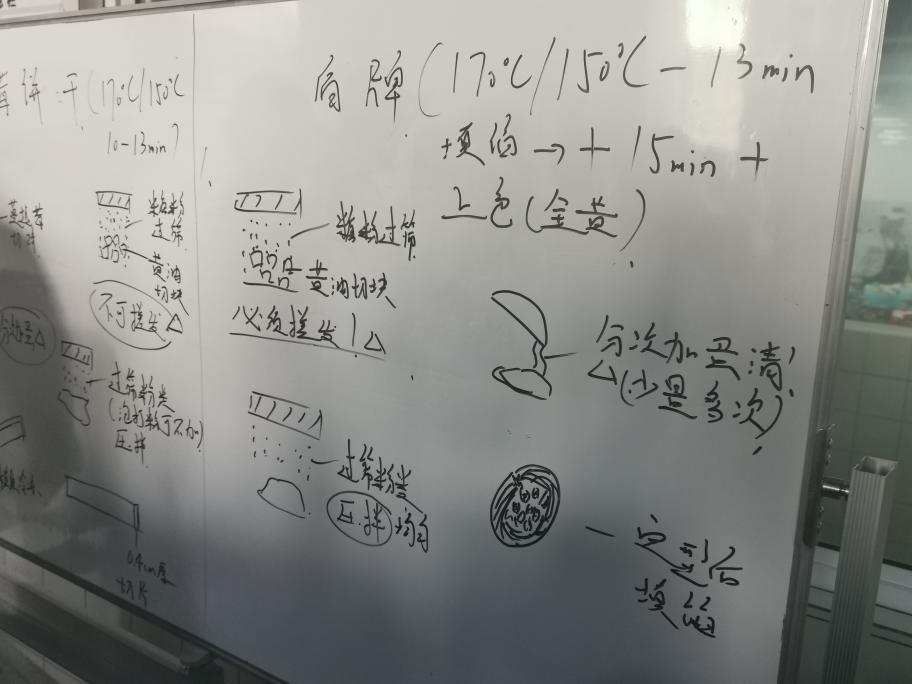 饼干(170℃/150℃
10-13min)
蔓越莓
切碎
糖粉
过筛
黄油
切块
不可搓发△
过筛粉类
(泡打粉可不加)
压拌
0.4cm厚
切片
盾牌(170℃/150℃-13min
填馅→+15min+
上色(金黄)
糖粉过筛
黄油切块
必须搓发!△
分次加蛋清
△(少量多次)
过筛粉类
压拌均匀
定型后
填馅